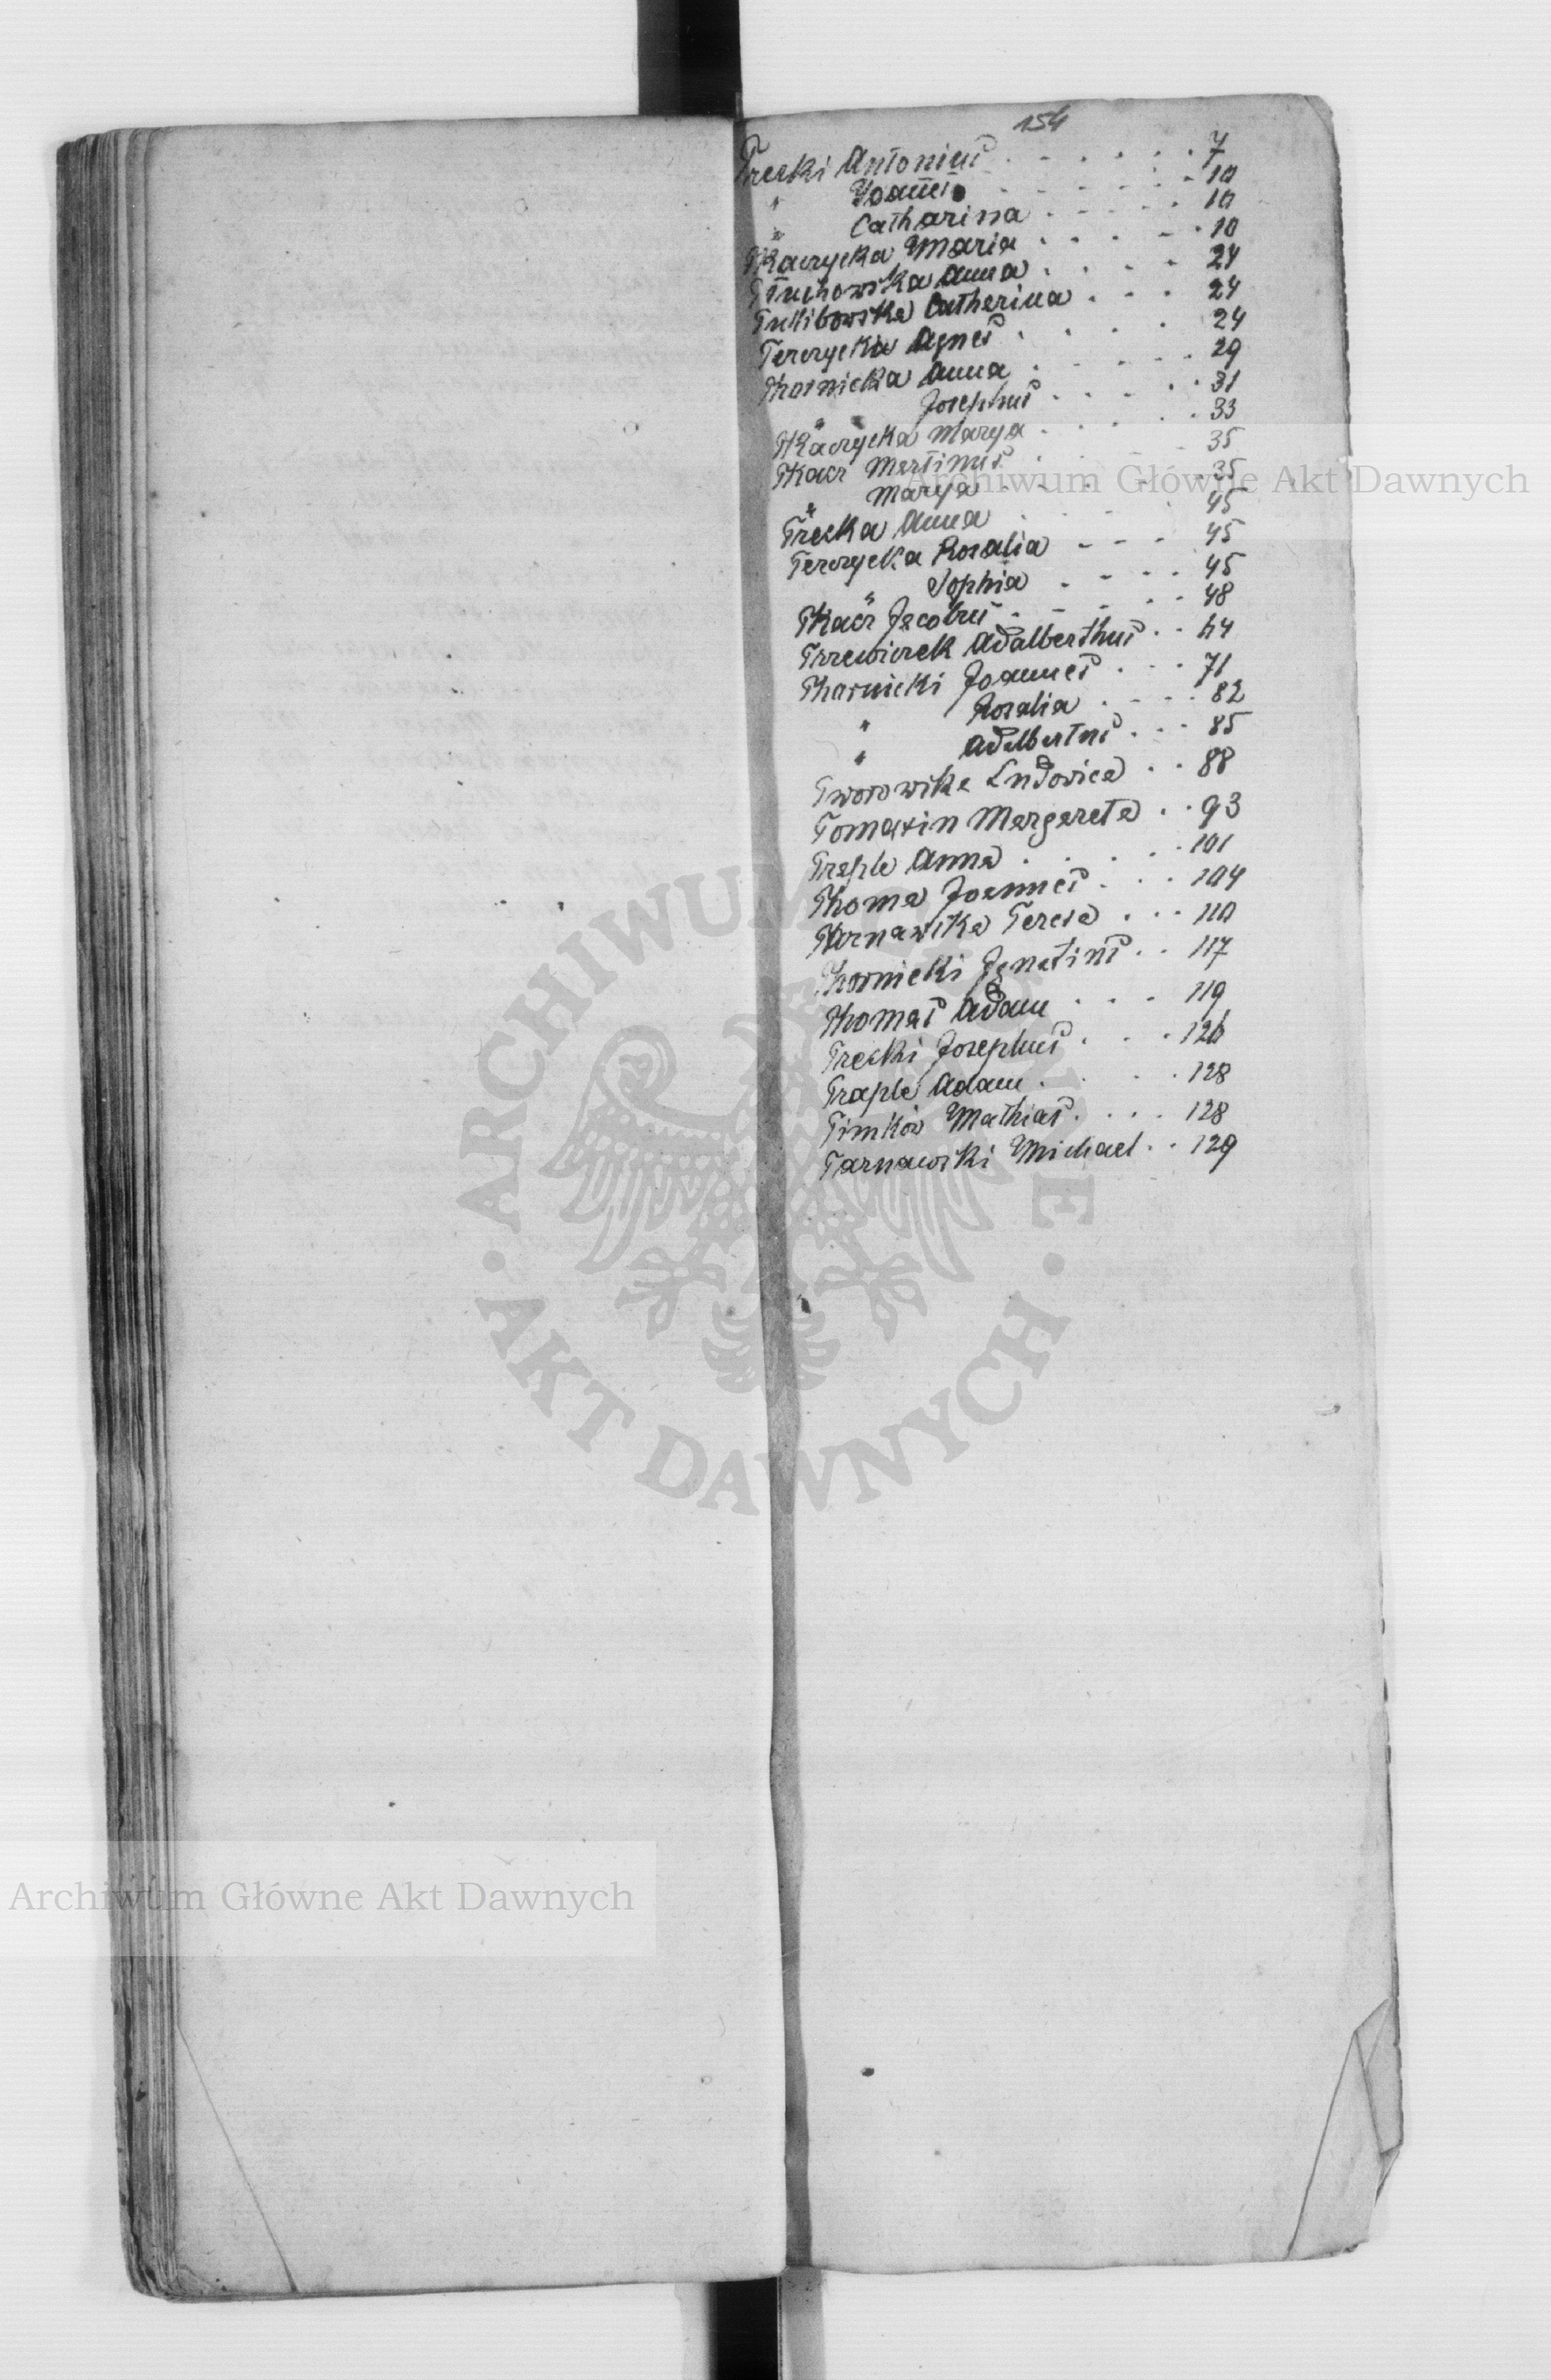 154
Treski Antonius . . . . . . 7
" Joannes - - - - - - 10
" Catharina . - - - . 10
Tkaczycka Maria . . . - . 10
Tuchowska Anna . . - - 24
Tullibowska Catherina . - . 24
Terczycka Agnes . . . . 24
Thornicka Anna . - . - . 29
" Josephus . . - . . 31
Tkaczycka Marya . . . . . 33
Tkacz Martinus . . - - 35
" Marya - - - - . 35
Treska Anna . . - . 45
Terczycka Rosalia - - - 45
" Sophia . - - . 45
Tkacz Jacobus . - - . . 48
Trzewiczek Adalberthus . . 64
Tharnicki Joannes . . . 71
" Rosalia . - - . 82
" Adalbertus . . . 85
Tworowska Ludovica . . 88
Tomaxin Margareta . . 93
Traple Anna . . . . . 101
Thoma Joannes . . . 104
Tarnawska Teresa . . . 110
Thornicki Ignatius . . 117
Thomas Adam . . . 119
Treski Josephus . . . 126
Traple Adam . . . . 128
Timków Mathias . . . . 128
Tarnawski Michael . . 129
Archiwum Główne Akt Dawnych
ARCHIWUM GŁÓWNE
• AKT DAWNYCH •
Archiwum Główne Akt Dawnych